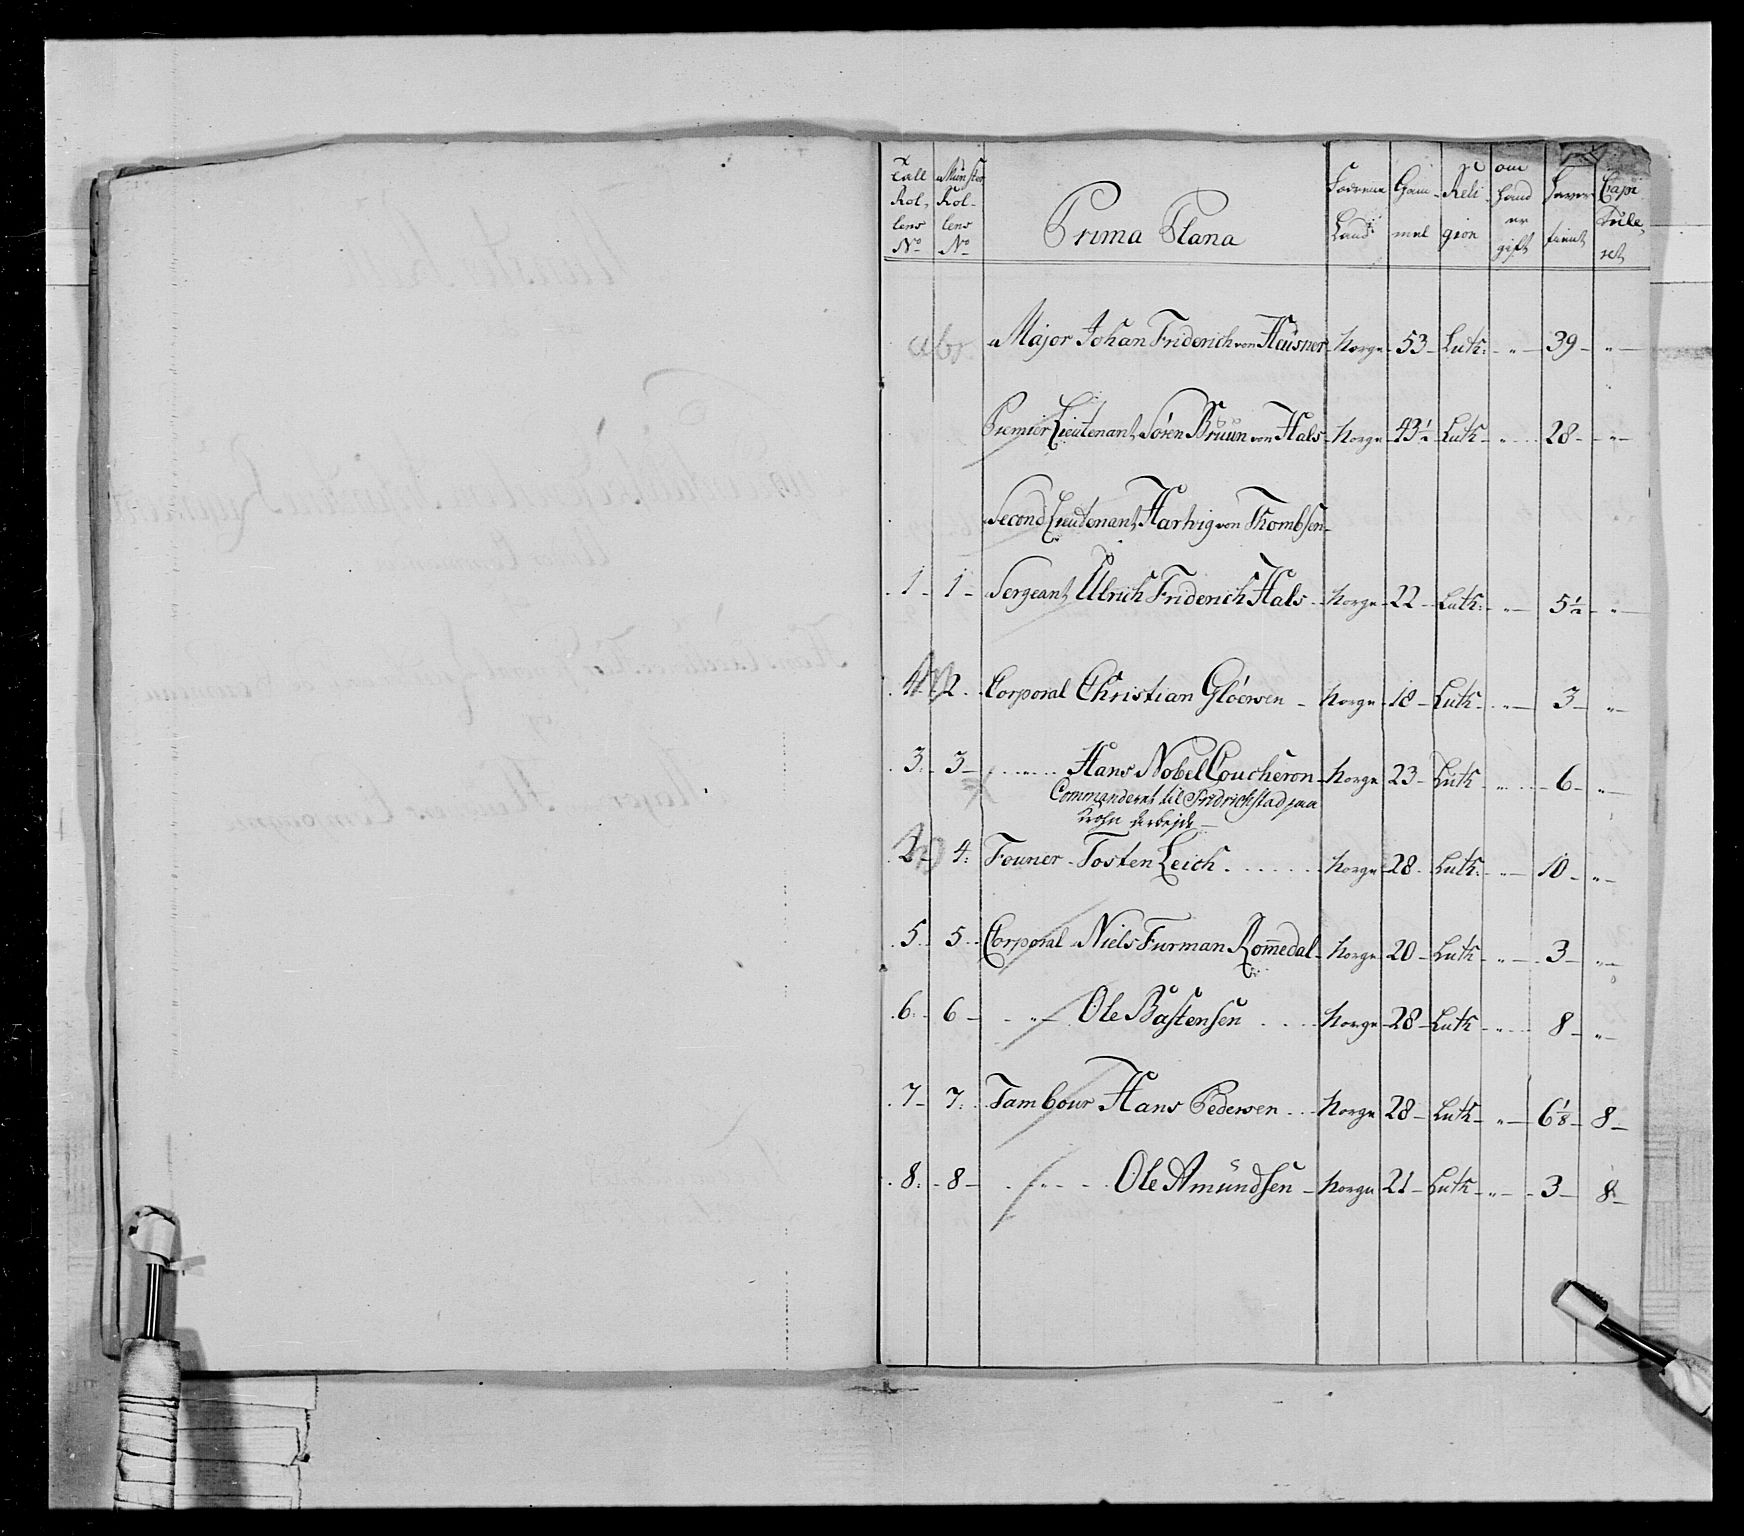 Tall Rollens No | Mynster Rollens No | Prima Plana | Födrene Land | Gammel | Religion | om hand er gift | haver tient | Capituleret
abs. Major Johan Friderich von Haüsner | Norge | 53 | Luth: | „ | 39 | „
Premier Lieutenant Sören Brüün von Hals | Norge | 43½ | Luth | „ | 28 | „
Second Lieutenant Hartvig von Thombsen
1 | 1 | Sergeant Ulrich Friderich Hals | Norge | 22 | Luth: | „ | 5½ | „
4 | 2 | Corporal Christian Glöersen | Norge | 18 | Luth | „ | 3 | „
3 | 3 | „ Hans Nobel Coucheron | Norge | 23 | Luth | „ | 6 | „
Commanderet til Fridrichstad paa
arbejde
2 | 4 | Fourier Tosten Leich | Norge | 28 | Luth: | „ | 10 | „
5 | 5 | Corporal Niels Furman Rom̄edal | Norge | 20 | Luth | „ | 3 | „
6 | 6 | „ Ole Bastensen | Norge | 28 | Luth | „ | 8 | „
7 | 7 | Tambour Hans Pedersen | Norge | 28 | Luth | „ | 6⅛ | 8
8 | 8 | „ Ole Amündsen | Norge | 21 | Luth | „ | 3 | 8